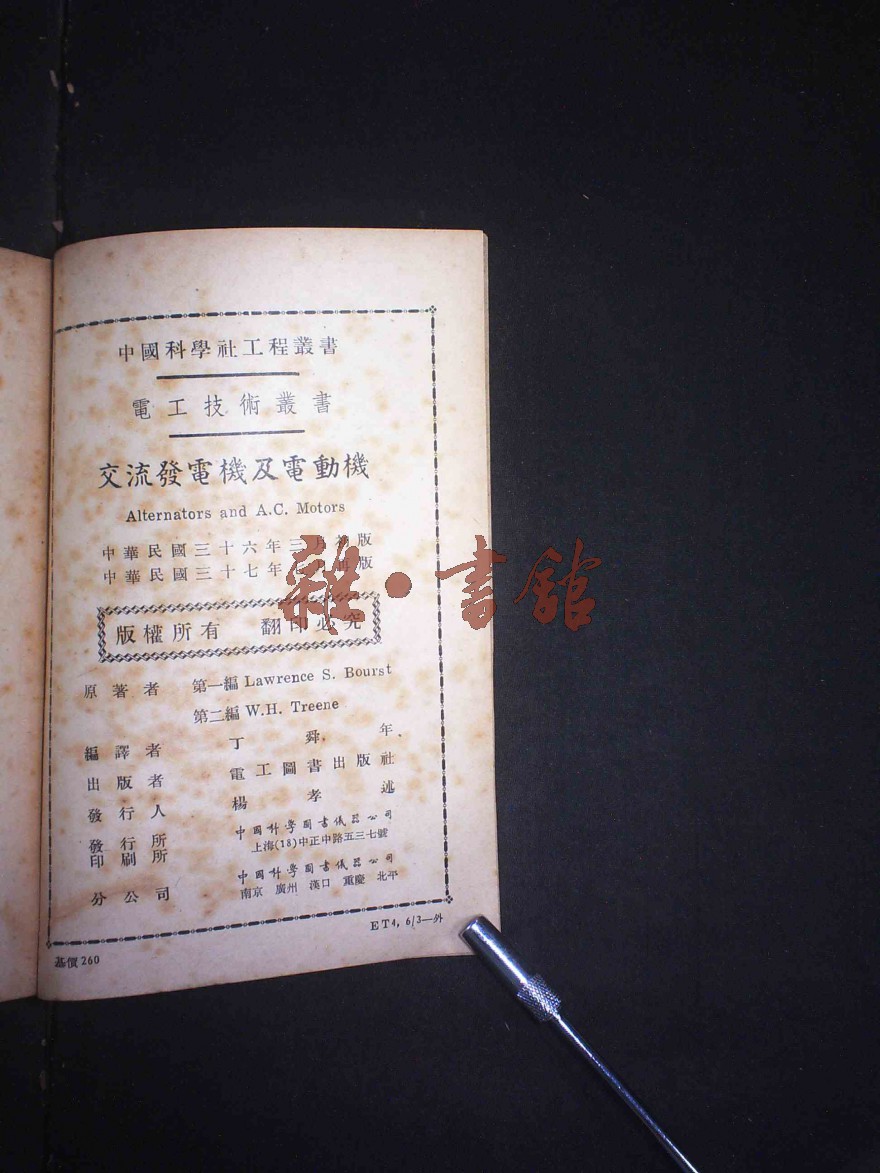 中國科學社工程叢書
電工技術叢書
交流發電機及電動機
Alternators and A.C. Motors
中華民國三十六年三月初版
中華民國三十七年 月再版
雜·書館
版權所有 翻印必究
原著者 第一編 Lawrence S. Bourst
第二編 W.H. Treene
編譯者 丁舜年
出版者 電工圖書出版社
發行人 楊孝述
發行所
印刷所
中國科學圖書儀器公司
上海(18)中正中路五三七號
分公司
中國科學圖書儀器公司
南京 廣州 漢口 重慶 北平
ET4, 6/3—外
基價260